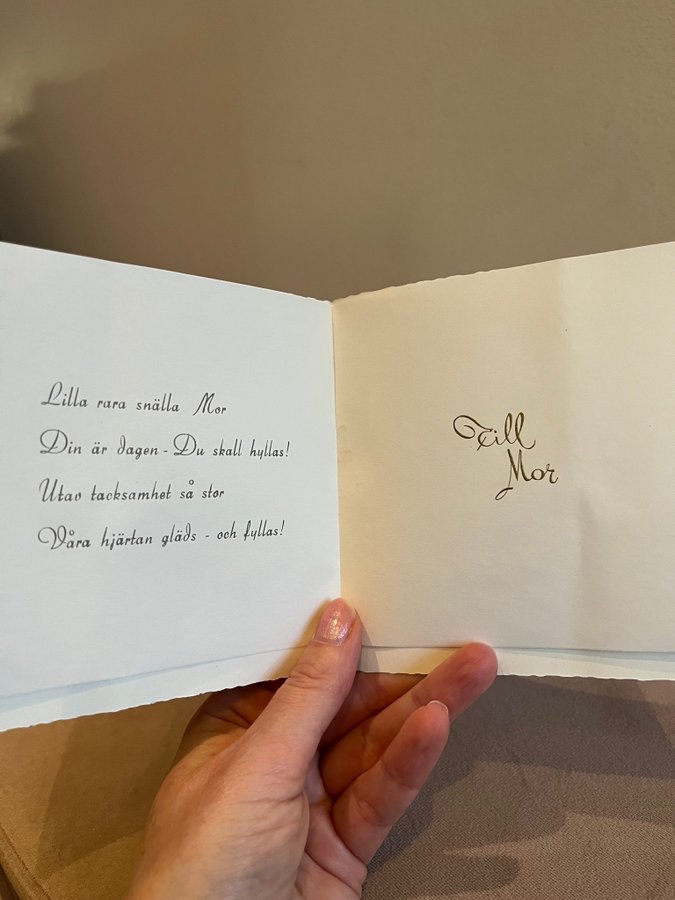 Lilla rara snälla Mor
Din är dagen - Du skall hyllas!
Utav tacksamhet så stor
Våra hjärtan gläds - och fyllas!
Till
Mor